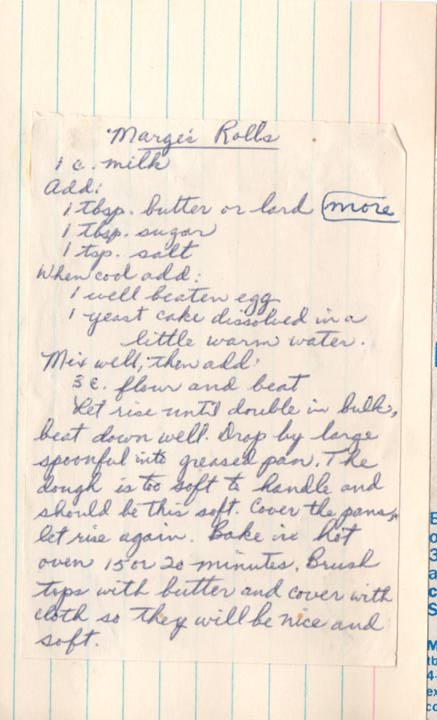 Marge's Rolls
1 c. milk
Add:
1 tbsp. butter or lard more
1 tbsp. sugar
1 tsp. salt
When cool add:
1 well beaten egg
1 yeast cake dissolved in a
little warm water.
Mix well, then add
3 c. flour and beat
Let rise until double in bulk,
beat down well. Drop by large
spoonful into greased pan. The
dough is too soft to handle and
should be this soft. Cover the pans,
let rise again. Bake in hot
oven 15 or 20 minutes. Brush
tops with butter and cover with
cloth so they will be nice and
soft.
E
o
3
a
c
S
M
tb
4-
ex
co